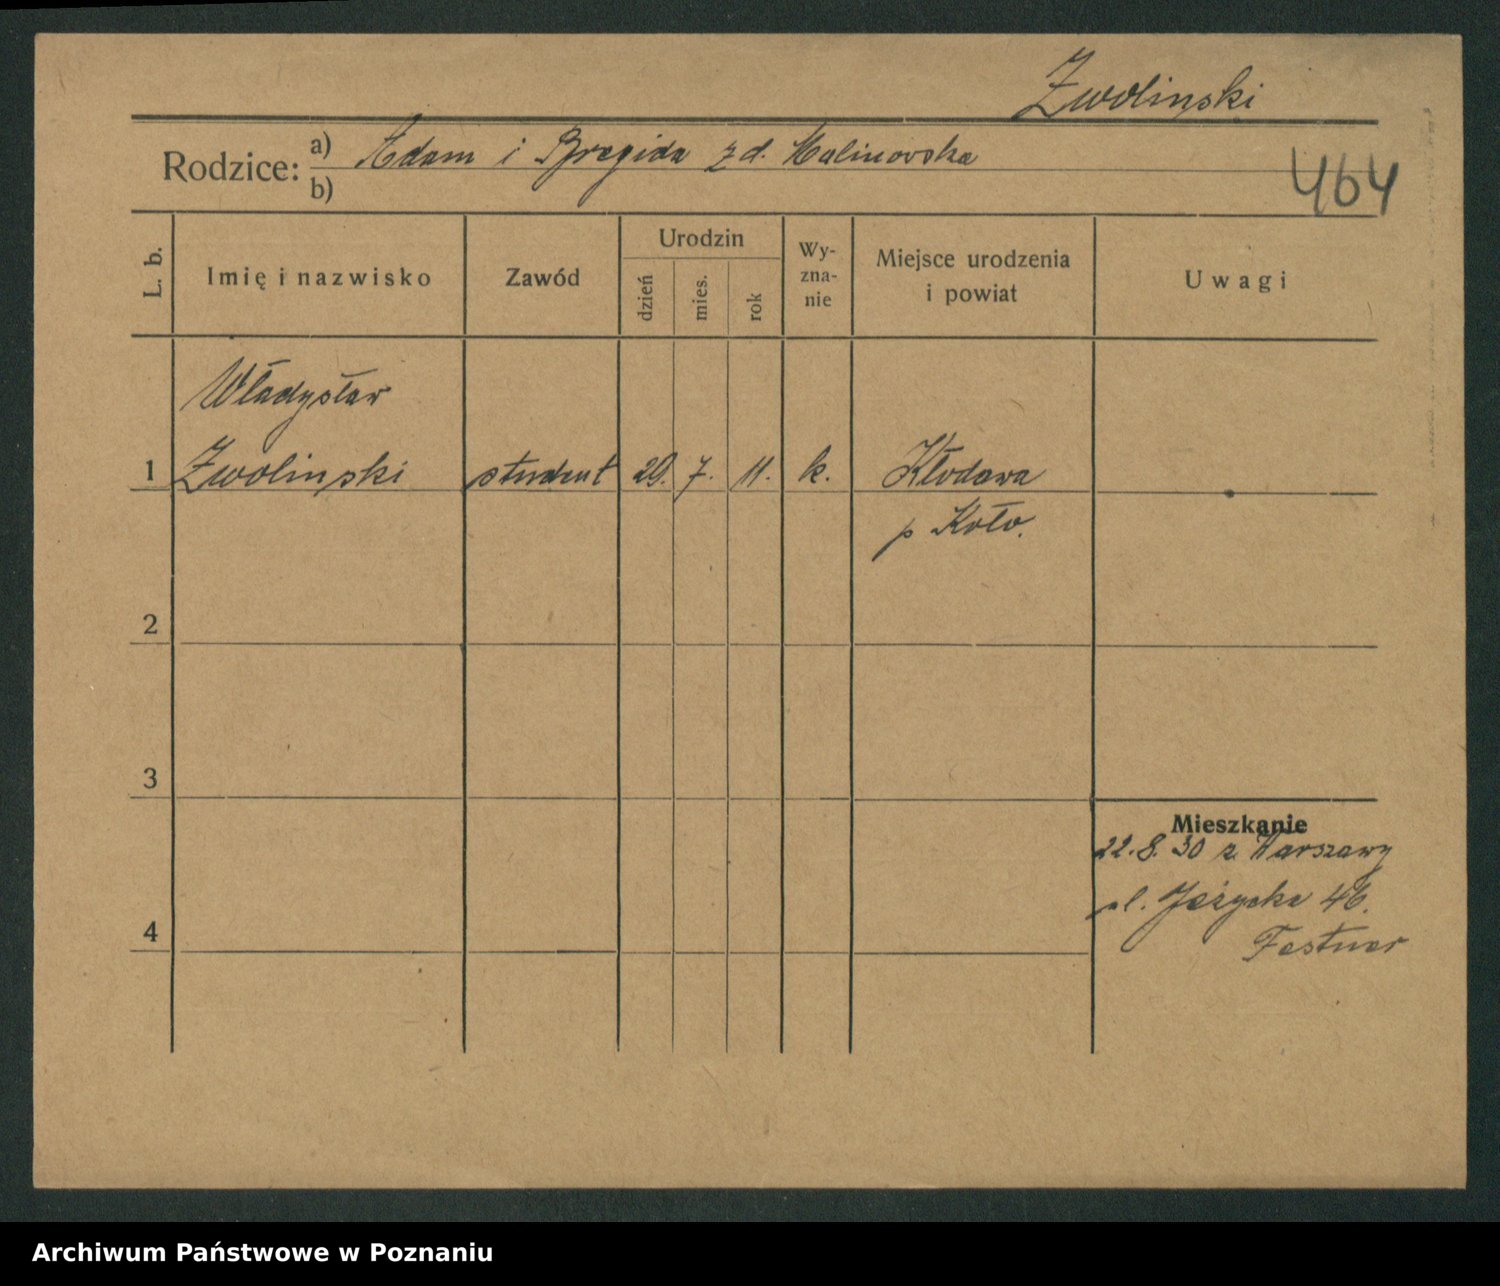 Zwolinski
Rodzice: a) Adam i Brygida z d. Malinowska
b)
464
L. b.
Imię i nazwisko
Zawód
Urodzin
dzień
mies.
rok
Wy-
zna-
nie
Miejsce urodzenia
i powiat
Uwagi
Władysław
1 Zwolinski student 29. 7. 11. k. Kłodawa
p Koło.
2
3
Mieszkanie
22.8.30 z Warszawy
ul. Jeżycka 46.
4
Festner
Archiwum Państwowe w Poznaniu